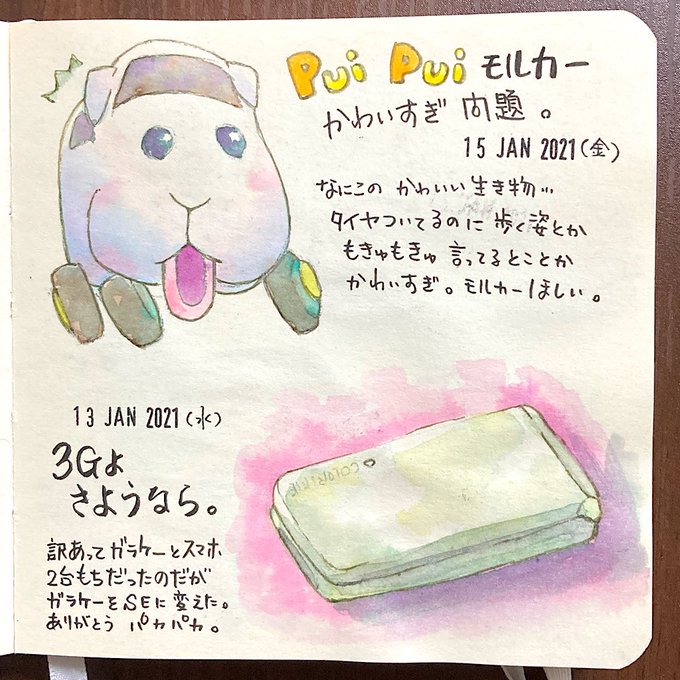 Pui Pui モルカー
かわいすぎ 問題。
15 JAN 2021(金)
なにこの かわいい 生き物…
タイヤついてるのに 歩く姿とか
もきゅもきゅ 言ってるとことか
かわいすぎ。モルカーほしい。
13 JAN 2021(水)
3Gよ
さようなら。
訳あってガラケーとスマホ
2台もちだったのだが
ガラケーをSEに変えた。
ありがとう パカパカ。